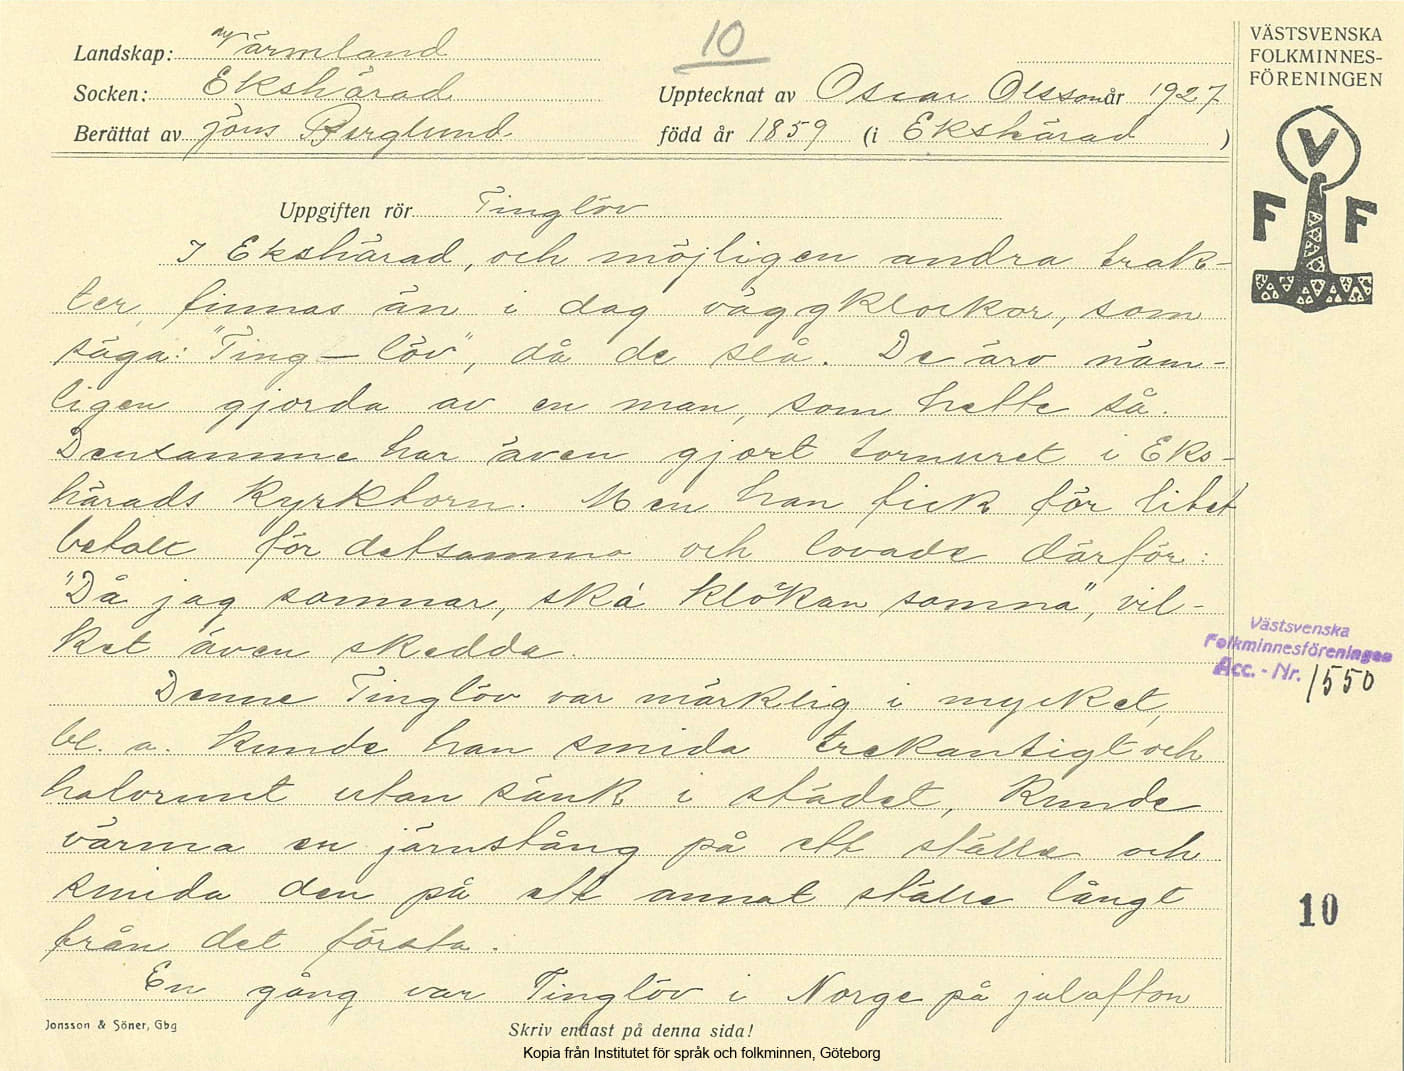 10
Landskap: Värmland
Socken: Ekshärad
Upptecknat av Oscar Olsson år 1927
Berättat av Jöns Berglund
född år 1859 (i Ekshärad)
VÄSTSVENSKA
FOLKMINNES-
FÖRENINGEN
V
F F
Uppgiften rör Tinglöv
I Ekshärad, och möjligen andra trak-
ter, finnas än i dag väggklockor, som
säga: "Ting – löv", då de slå. De äro näm-
ligen gjorda av en man, som hette så.
Densamme har även gjort tornuret i Eks-
härads kyrktorn. Men han fick för litet
betalt för detsamma och lovade därför:
"Då jag somnar, ska klökan somna", vil-
ket även skedde.
Denne Tinglöv var märklig i mycket,
bl. a. kunde han smida trekantigt och
halvrunt utan sänk i städet, kunde
värma en järnstång på ett ställe och
smida den på ett annat ställe långt
från det första.
En gång var Tinglöv i Norge på julafton
Västsvenska
Folkminnesföreningen
Acc. - Nr. 1550
10
Jonsson & Söner, Gbg
Skriv endast på denna sida!
Kopia från Institutet för språk och folkminnen, Göteborg